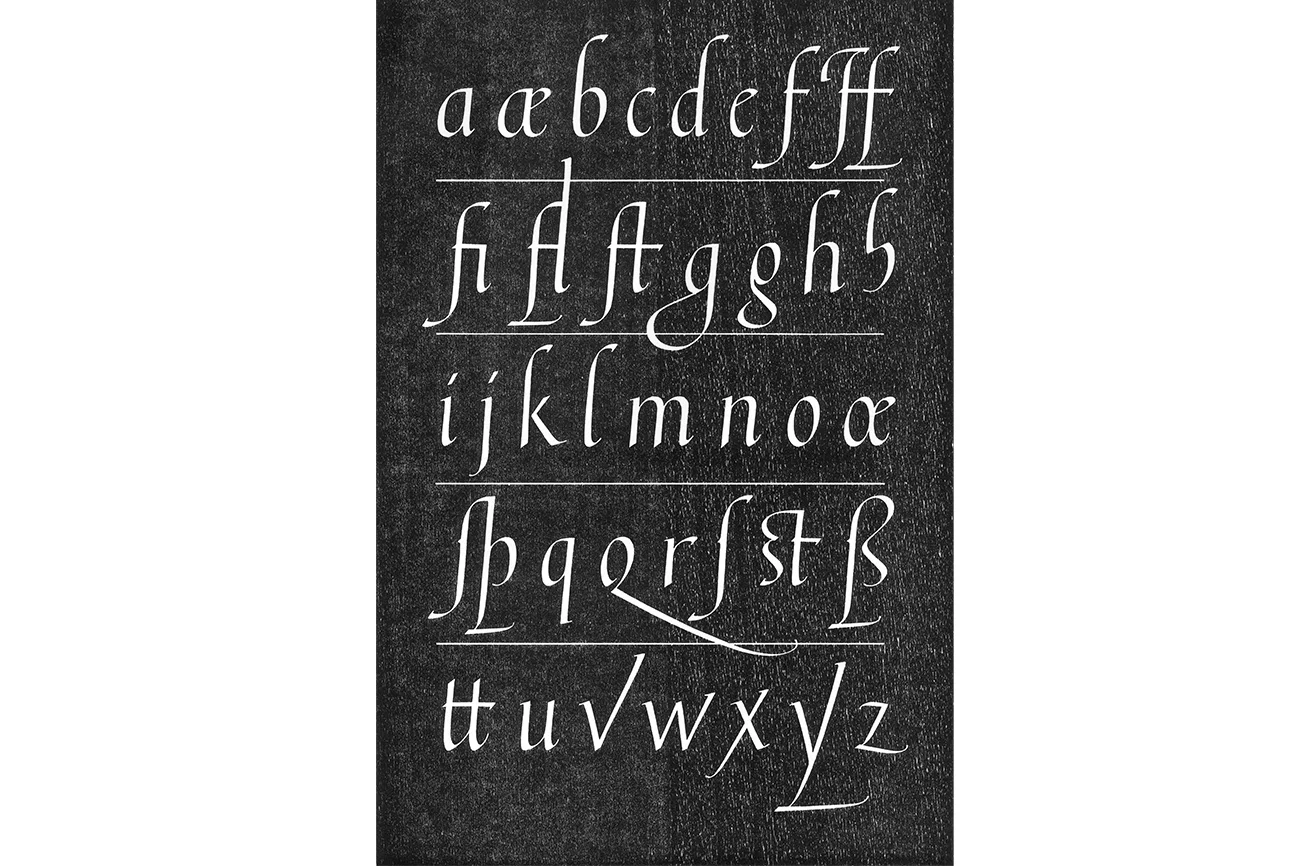 a æ b c d e f ff
fi fl ft g g h h
i j k l m n o œ
ſp q q r ſ st ß
tt u v w x y z